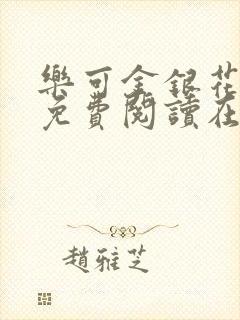 樂可金銀花
免費閱讀在
趙雅芝